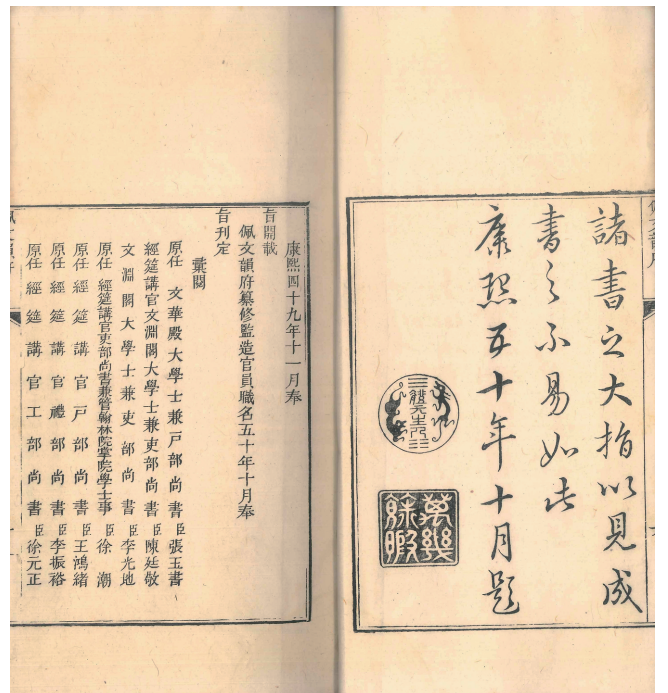 諸書之大指以見成
書之不易如此
康熙五十年十月題
體元主人
萬幾餘暇
康熙四十九年十一月奉
旨開載
佩文韻府纂修監造官員職名五十年十月奉
旨刊定
彙閱
原任文華殿大學士兼戶部尚書臣張玉書
經筵講官文淵閣大學士兼吏部尚書臣陳廷敬
文淵閣大學士兼吏部尚書臣李光地
原任經筵講官吏部尚書兼管翰林院掌院學士事臣徐潮
原任經筵講官戶部尚書臣王鴻緒
原任經筵講官禮部尚書臣李振裕
原任經筵講官工部尚書臣徐元正